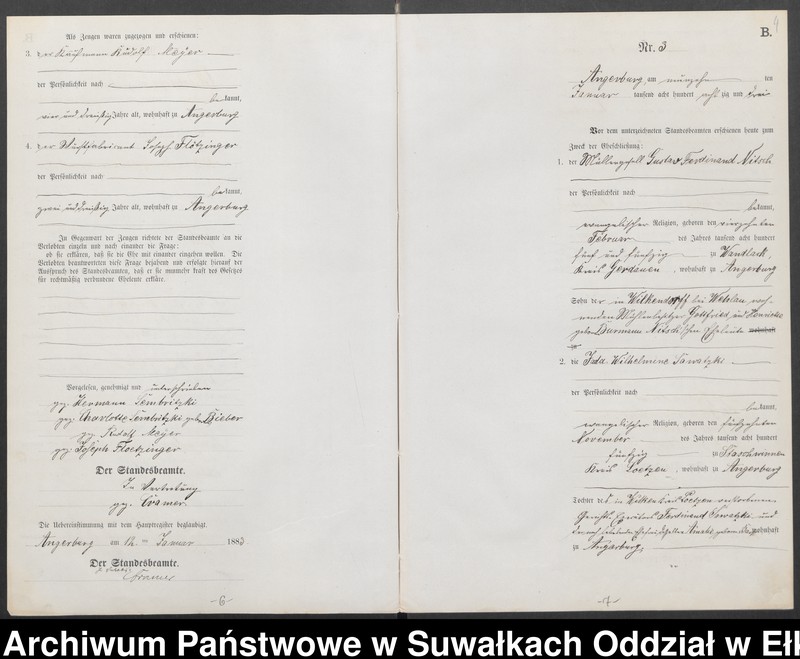 Als Zeugen waren zugezogen und erschienen:
3. der Kaufmann Rudolf Meyer
der Persönlichkeit nach
bekannt,
vier und dreißig Jahre alt, wohnhaft zu Angerburg
4. der Wurstfabrikant Joseph Flötzinger
der Persönlichkeit nach
bekannt,
zwei und dreißig Jahre alt, wohnhaft zu Angerburg
In Gegenwart der Zeugen richtete der Standesbeamte an die
Verlobten einzeln und nach einander die Frage:
ob sie erklären, daß sie die Ehe mit einander eingehen wollen. Die
Verlobten beantworteten diese Frage bejahend und erfolgte hierauf der
Ausspruch des Standesbeamten, daß er sie nunmehr kraft des Gesetzes
für rechtmäßig verbundene Eheleute erkläre.
Vorgelesen, genehmigt und unterschrieben
gez. Hermann Sembritzki
gez. Charlotte Sembritzki geb. Bieber
gez. Rudolf Meyer
gez. Joseph Floetzinger
Der Standesbeamte.
In Vertretung
gez. Cramer
Die Uebereinstimmung mit dem Hauptregister beglaubigt.
Angerburg am 12. ten Januar 1883
Der Standesbeamte.
Cramer
-6-
B.
Nr. 3
Angerburg am ten
Januar tausend acht hundert acht zig und drei
Vor dem unterzeichneten Standesbeamten erschienen heute zum
Zweck der Eheschließung:
1. der Müllergesell Gustav Ferdinand Nitsch
der Persönlichkeit nach
bekannt,
evangelischer Religion, geboren den vierzehnten
Februar des Jahres tausend acht hundert
fünf und fünfzig zu Wandlack,
Kreis Gerdauen, wohnhaft zu Angerburg
Sohn der in Wilkendorff bei Wehlau woh-
nenden Mühlenbesitzer Gottfried und Henriette
geborene Nitsch'schen Eheleute wohnhaft
zu
2. die Ida Wilhelmine Sawetzki
der Persönlichkeit nach
bekannt,
evangelischer Religion, geboren den fünfzehnten
November des Jahres tausend acht hundert
fünfzig zu Staschwinnen
Kreis Loetzen, wohnhaft zu Angerburg
Tochter des in Kreis Loetzen verstorbenen
Ferdinand Sawetzki und
wohnhaft
zu Angerburg,
-7-
Archiwum Państwowe w Suwałkach Oddział w Ełk